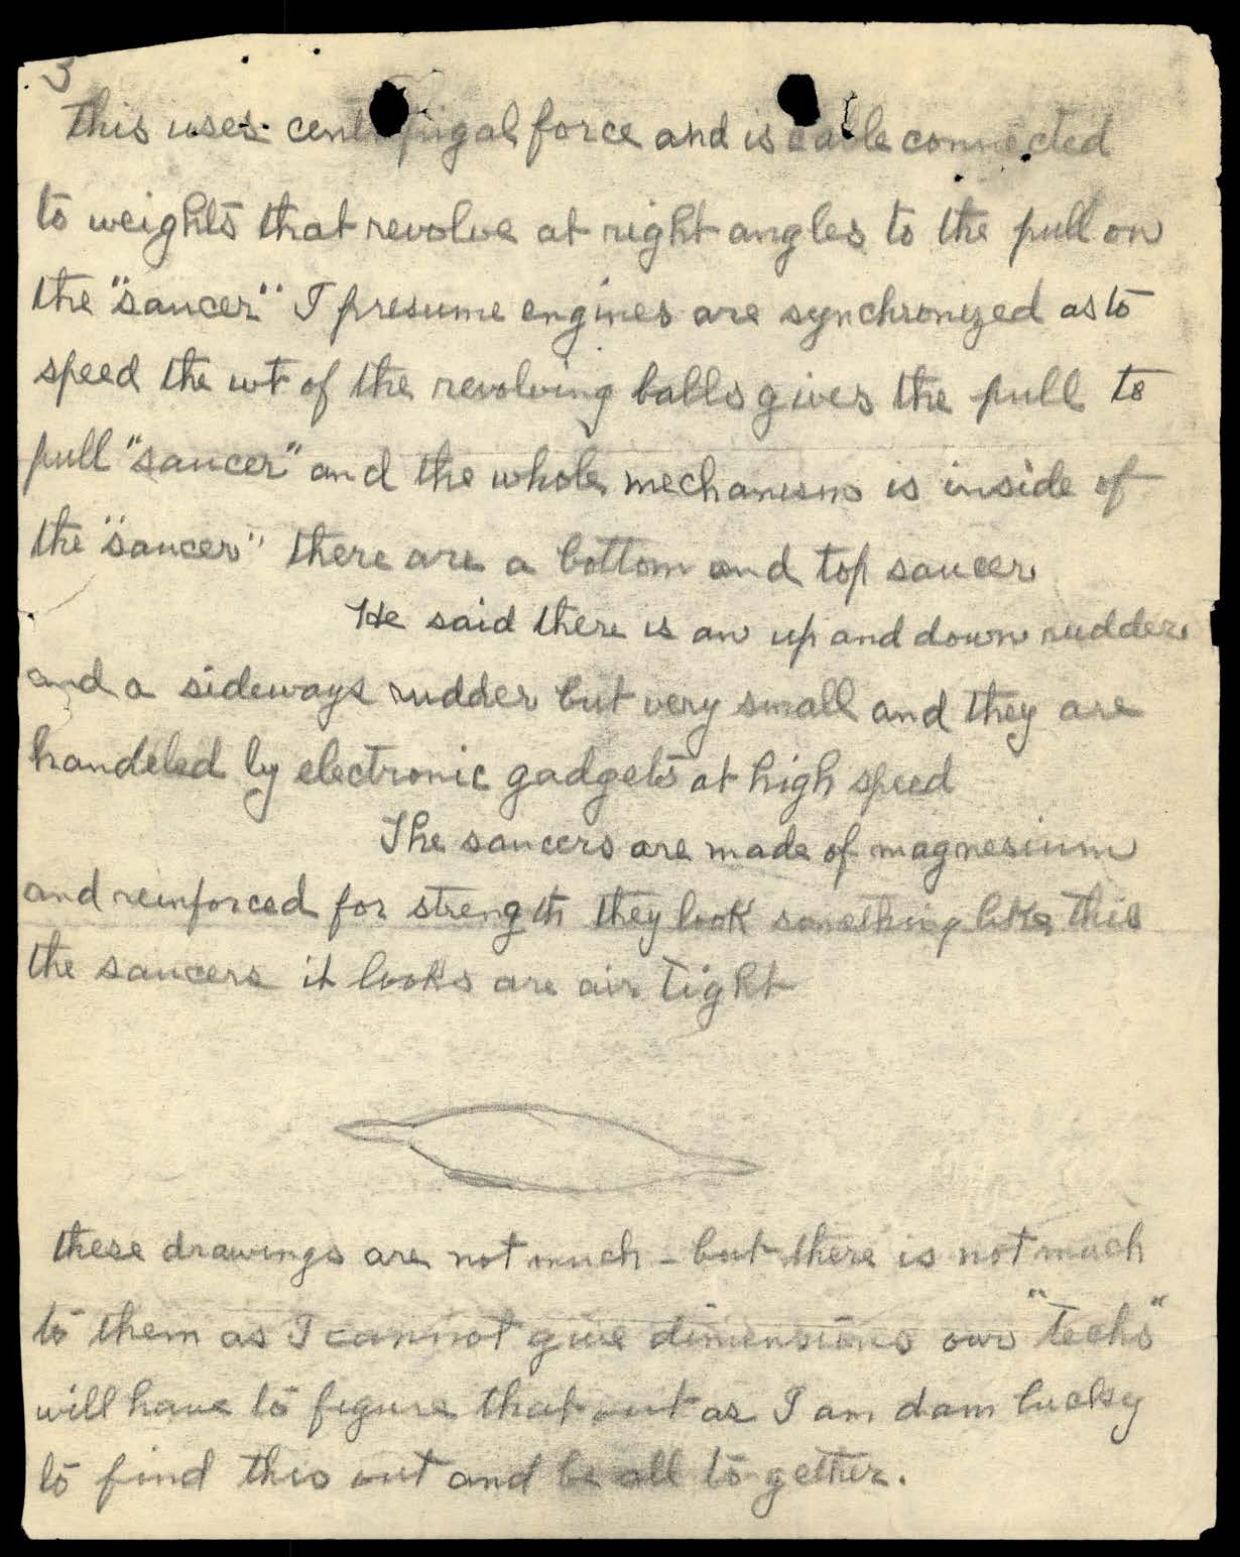 3
This uses centrifugal force and is cable connected
to weights that revolve at right angles to the pull on
the "saucer" I presume engines are synchronized as to
speed the wt of the revolving balls gives the pull to
pull "saucer" and the whole mechanism is inside of
the "saucer" there are a bottom and top saucer
He said there is an up and down rudder
and a sideways rudder but very small and they are
handeled by electronic gadgets at high speed
The saucers are made of magnesium
and reinforced for strength they look something like this
the saucers it looks are air tight
these drawings are not much - but there is not much
to them as I cannot give dimensions our "techs"
will have to figure that out as I am dam lucky
to find this out and be all to gether.